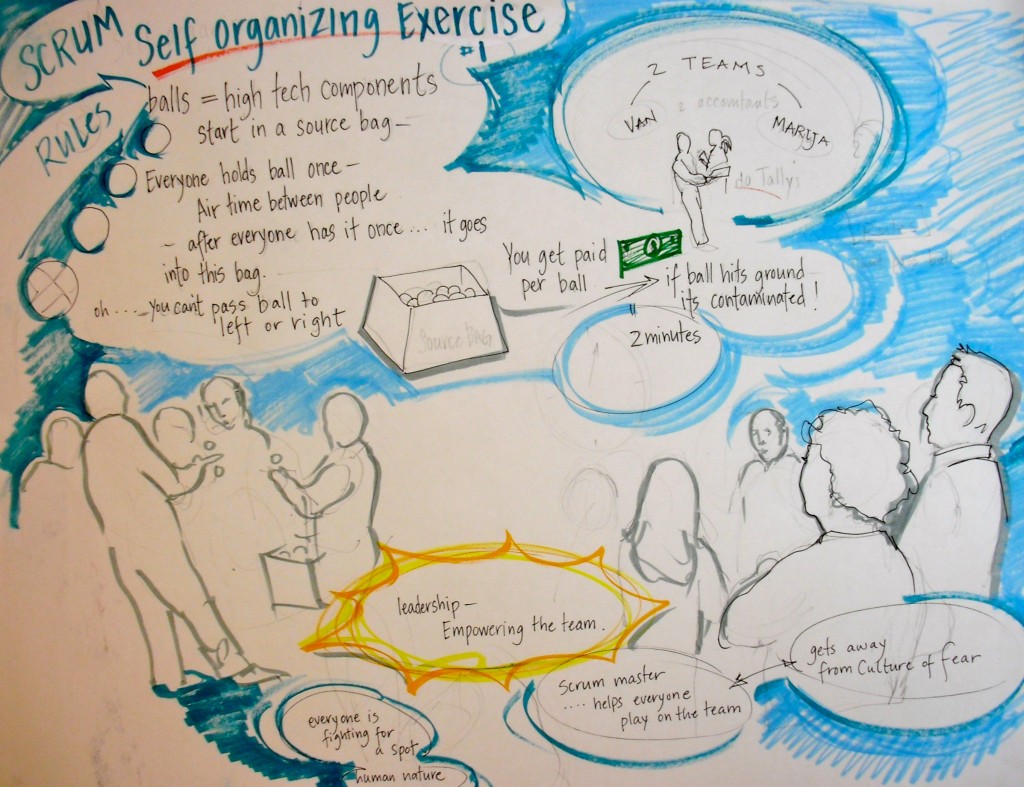 SCRUM Self organizing Exercise
#1
RULES
balls = high tech components
start in a source bag –
Everyone holds ball once –
Air time between people
– after everyone has it once ... it goes
into this bag.
oh .... you cant pass ball to
left or right
Source BAG
2 TEAMS
2 accountants
VAN
MARIJA
do Tallys
You get paid
per ball
if ball hits ground
its contaminated!
2 minutes
leadership –
Empowering the team.
gets away
from Culture of fear
Scrum master
.... helps everyone
play on the team
everyone is
fighting for
a spot
human nature